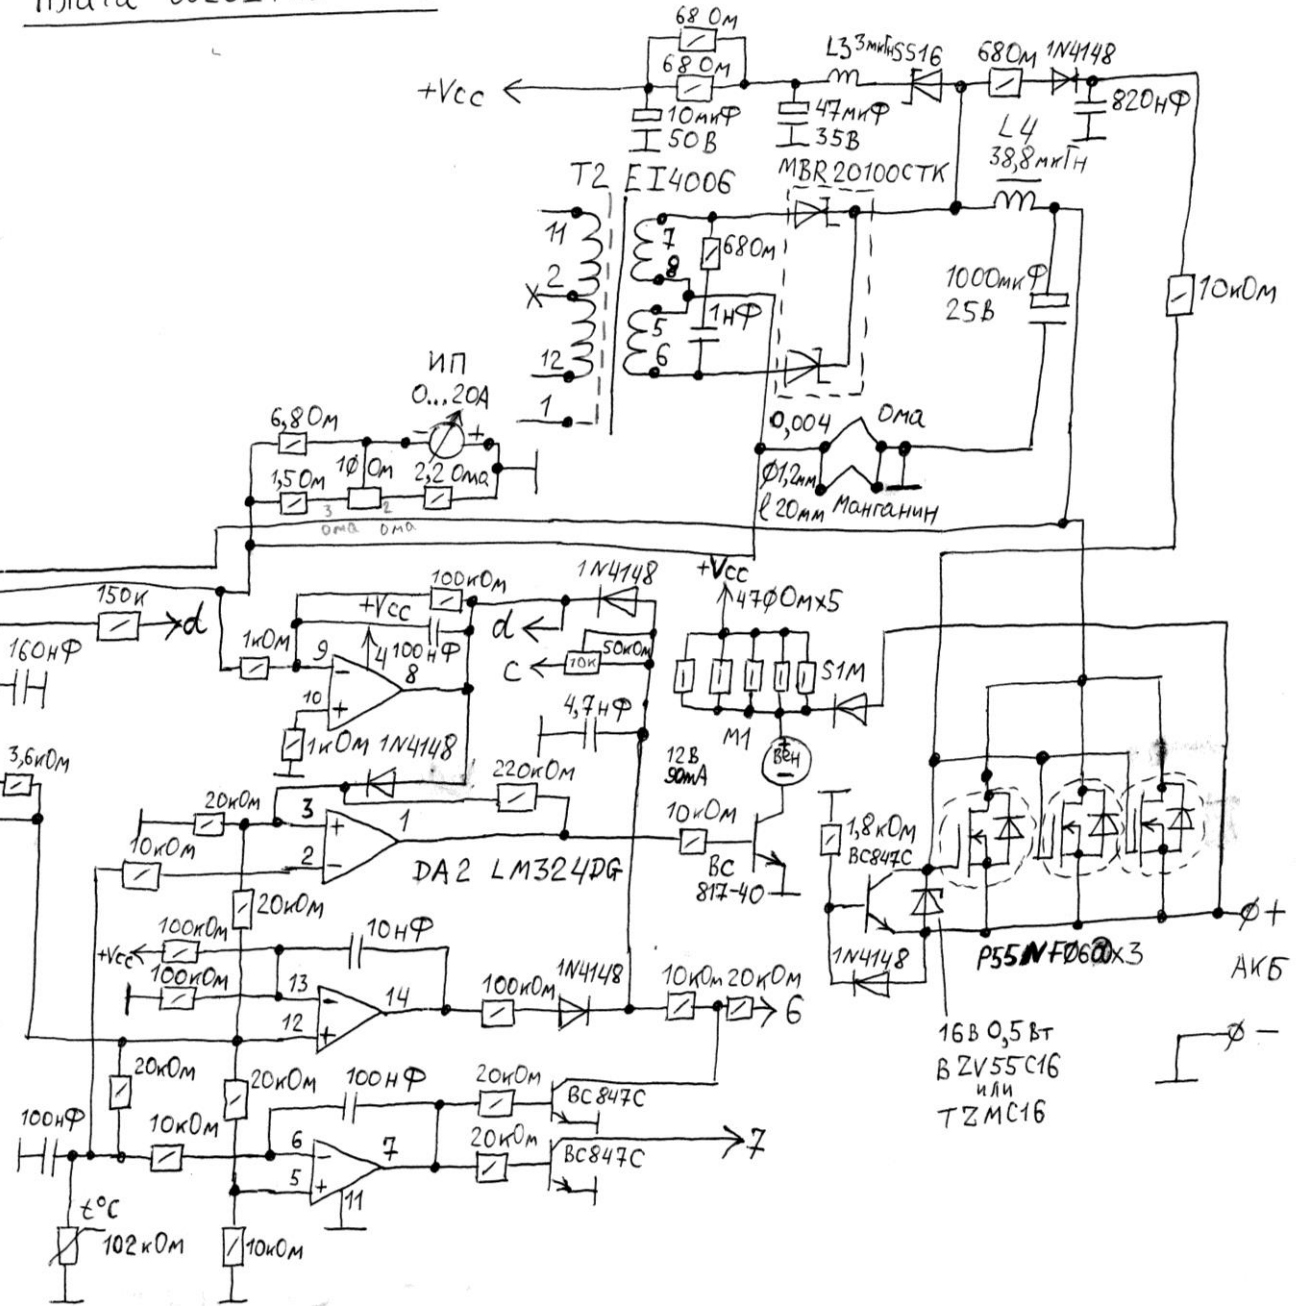 Плата
68 Ом
68 Ом
+Vcc
10мкФ
50В
47мкФ
35В
L3 3мкГн
SS16
68Ом
1N4148
820нФ
L4
38,8мкГн
T2 EI4006
MBR20100CTK
11
2
12
1
7
8
5
6
68Ом
1нФ
1000мкФ
25В
10кОм
ИП
0...20А
6,8Ом
-
+
1,5Ом
10Ом
2,2Ома
3
2
Ома
Ома
0,004
Ома
Ø1,2мм
l20мм
Манганин
150к
d
160нФ
100кОм
+Vcc
100нФ
1кОм
9
4
8
10
-
+
1кОм
1N4148
1N4148
d
c
10к
50кОм
4,7нФ
+Vcc
470Омх5
S1M
M1
12В
90mA
Вен
+
-
10кОм
BC
817-40
3,6кОм
20кОм
10кОм
3
2
1
+
-
220кОм
DA2 LM324DG
20кОм
1,8кОм
BC847C
1N4148
P55NF06x3
+
АКБ
-
16В 0,5Вт
BZV55C16
или
TZMC16
100кОм
+Vcc
100кОм
10нФ
13
12
14
-
+
100кОм
1N4148
10кОм
20кОм
6
20кОм
20кОм
100нФ
20кОм
BC847C
100нФ
10кОм
6
5
7
11
-
+
20кОм
BC847C
7
t°C
102кОм
10кОм